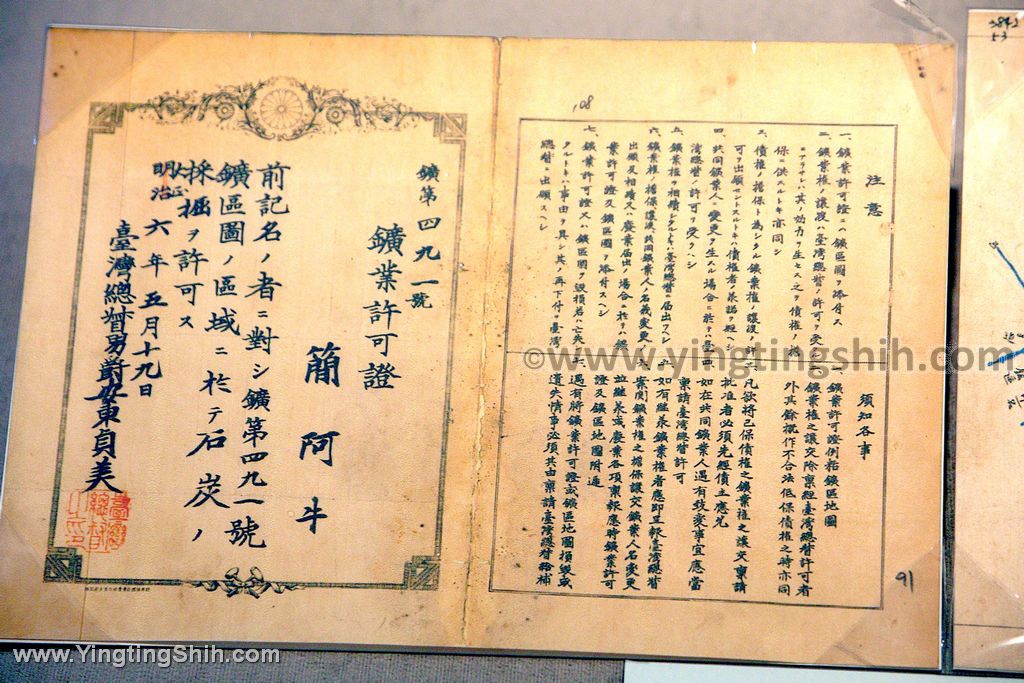 鑛第四九一號
鑛業許可證
簡阿牛
前記名ノ者ニ對シ鑛第四九一號
鑛區圖ノ區域ニ於テ石炭ノ
採掘ヲ許可ス
明治
大正六年五月十九日
臺灣總督男爵安東貞美
臺灣
總督
之印
108
注意
一、鑛業許可證ニハ鑛區圖ヲ添付ス
二、鑛業權ノ讓渡ハ臺灣總督ノ許可ヲ受クルニ
アラサレハ其ノ効力ヲ生セス之ヲ債權ノ擔
保ニ供スルトキ亦同シ
三、債權ノ擔保ト為シタル鑛業權ノ讓渡ノ許
可ヲ出願セントスルトキハ債權者ノ承諾ヲ經ヘシ
四、共同鑛業人ニ變更ヲ生スル場合ニ於テハ臺
灣總督ノ許可ヲ受クヘシ
五、鑛業權ヲ相續シタルトキハ臺灣總督ニ届出ツヘシ
六、鑛業權ノ擔保讓渡、共同鑛業人ノ名義變更ノ
出願及相續又ハ廢業届出ノ場合ニ於テハ鑛
業許可證及鑛區圖ヲ添付スヘシ
七、鑛業許可證又ハ鑛區圖ヲ毀損若ハ亡失シ
タルトキハ事由ヲ具シ其ノ再下付ヲ臺灣
總督ニ出願スヘシ
須知各事
一、鑛業許可證例粘鑛區地圖
二、鑛業權之讓交除禀經臺灣總督許可者
外其餘概作不合法低保債權之時亦同
三、凡欲將已保債權之鑛業權之讓交禀請
批准者必須先經債主應允
四、如在共同鑛業人遇有改變事宜應當
禀請臺灣總督許可
五、如有繼承鑛業權者應即呈報臺灣總督
六、案関鑛業權之擔保讓交鑛業人名變更
並繼承或廢業各項禀報應將鑛業許可
證及鑛區地圖附遞
七、遇有將鑛業許可證或鑛區地圖損毀或
遺失情事必須具由禀請臺灣總督給補
91
3842
53
©www.yingtingshih.com
www.YingtingShih.com
www.YingtingShih.com